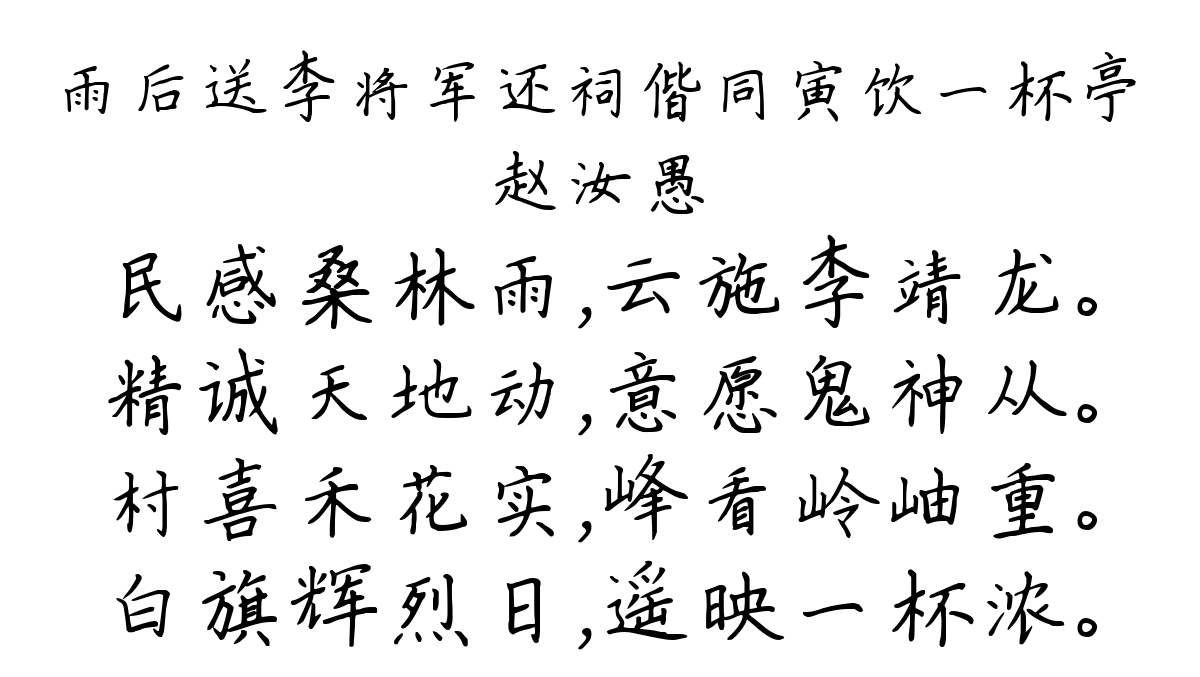 雨后送李将军还祠偕同寅饮一杯亭
赵汝愚
民感桑林雨,云施李靖龙。
精诚天地动,意愿鬼神从。
村喜禾花实,峰看岭岫重。
白旗辉烈日,遥映一杯浓。